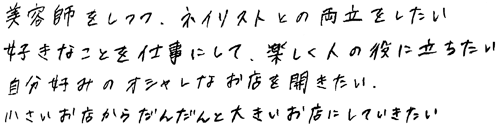 美容師をしつつ、ネイリストとの両立をしたい
好きなことを仕事にして、楽しく人の役に立ちたい
自分好みのオシャレなお店を開きたい.
小さいお店からだんだんと大きいお店にしていきたい